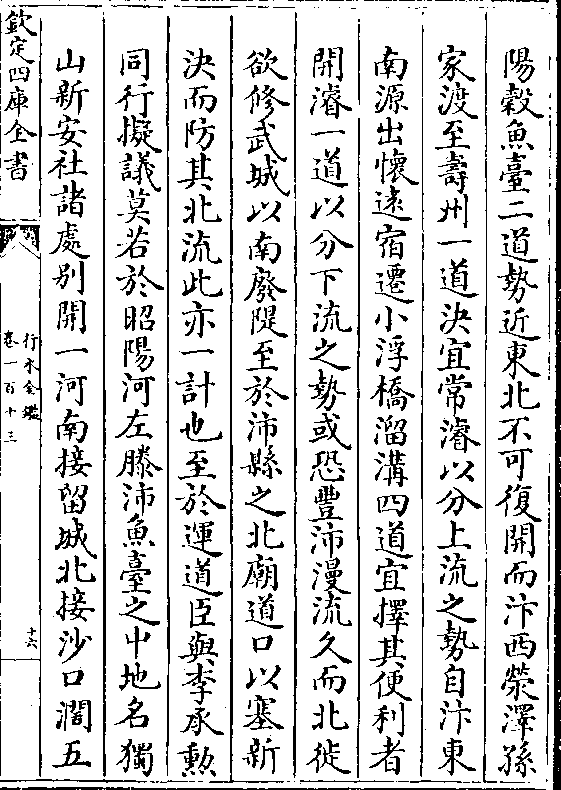 陽穀魚臺二道勢近東北不可復開而汴西滎澤孫
家渡至壽州一道決宜常濬以分上流之勢自汴東
南源出懷逺宿遷小浮橋溜溝四道宜擇其便利者
開濬一道以分下流之勢或恐豐沛漫流久而北徙
欲修武城以南廢隄至於沛縣之北廟道口以塞新
決而防其北流此亦一計也至於運道臣與李承勲
同行擬議莫若於昭陽河左滕沛魚臺之中地名獨
山新安社諸處别開一河南接留城北接沙口濶五
欽定四庫全書
行水金鑑
卷一百十三
十六